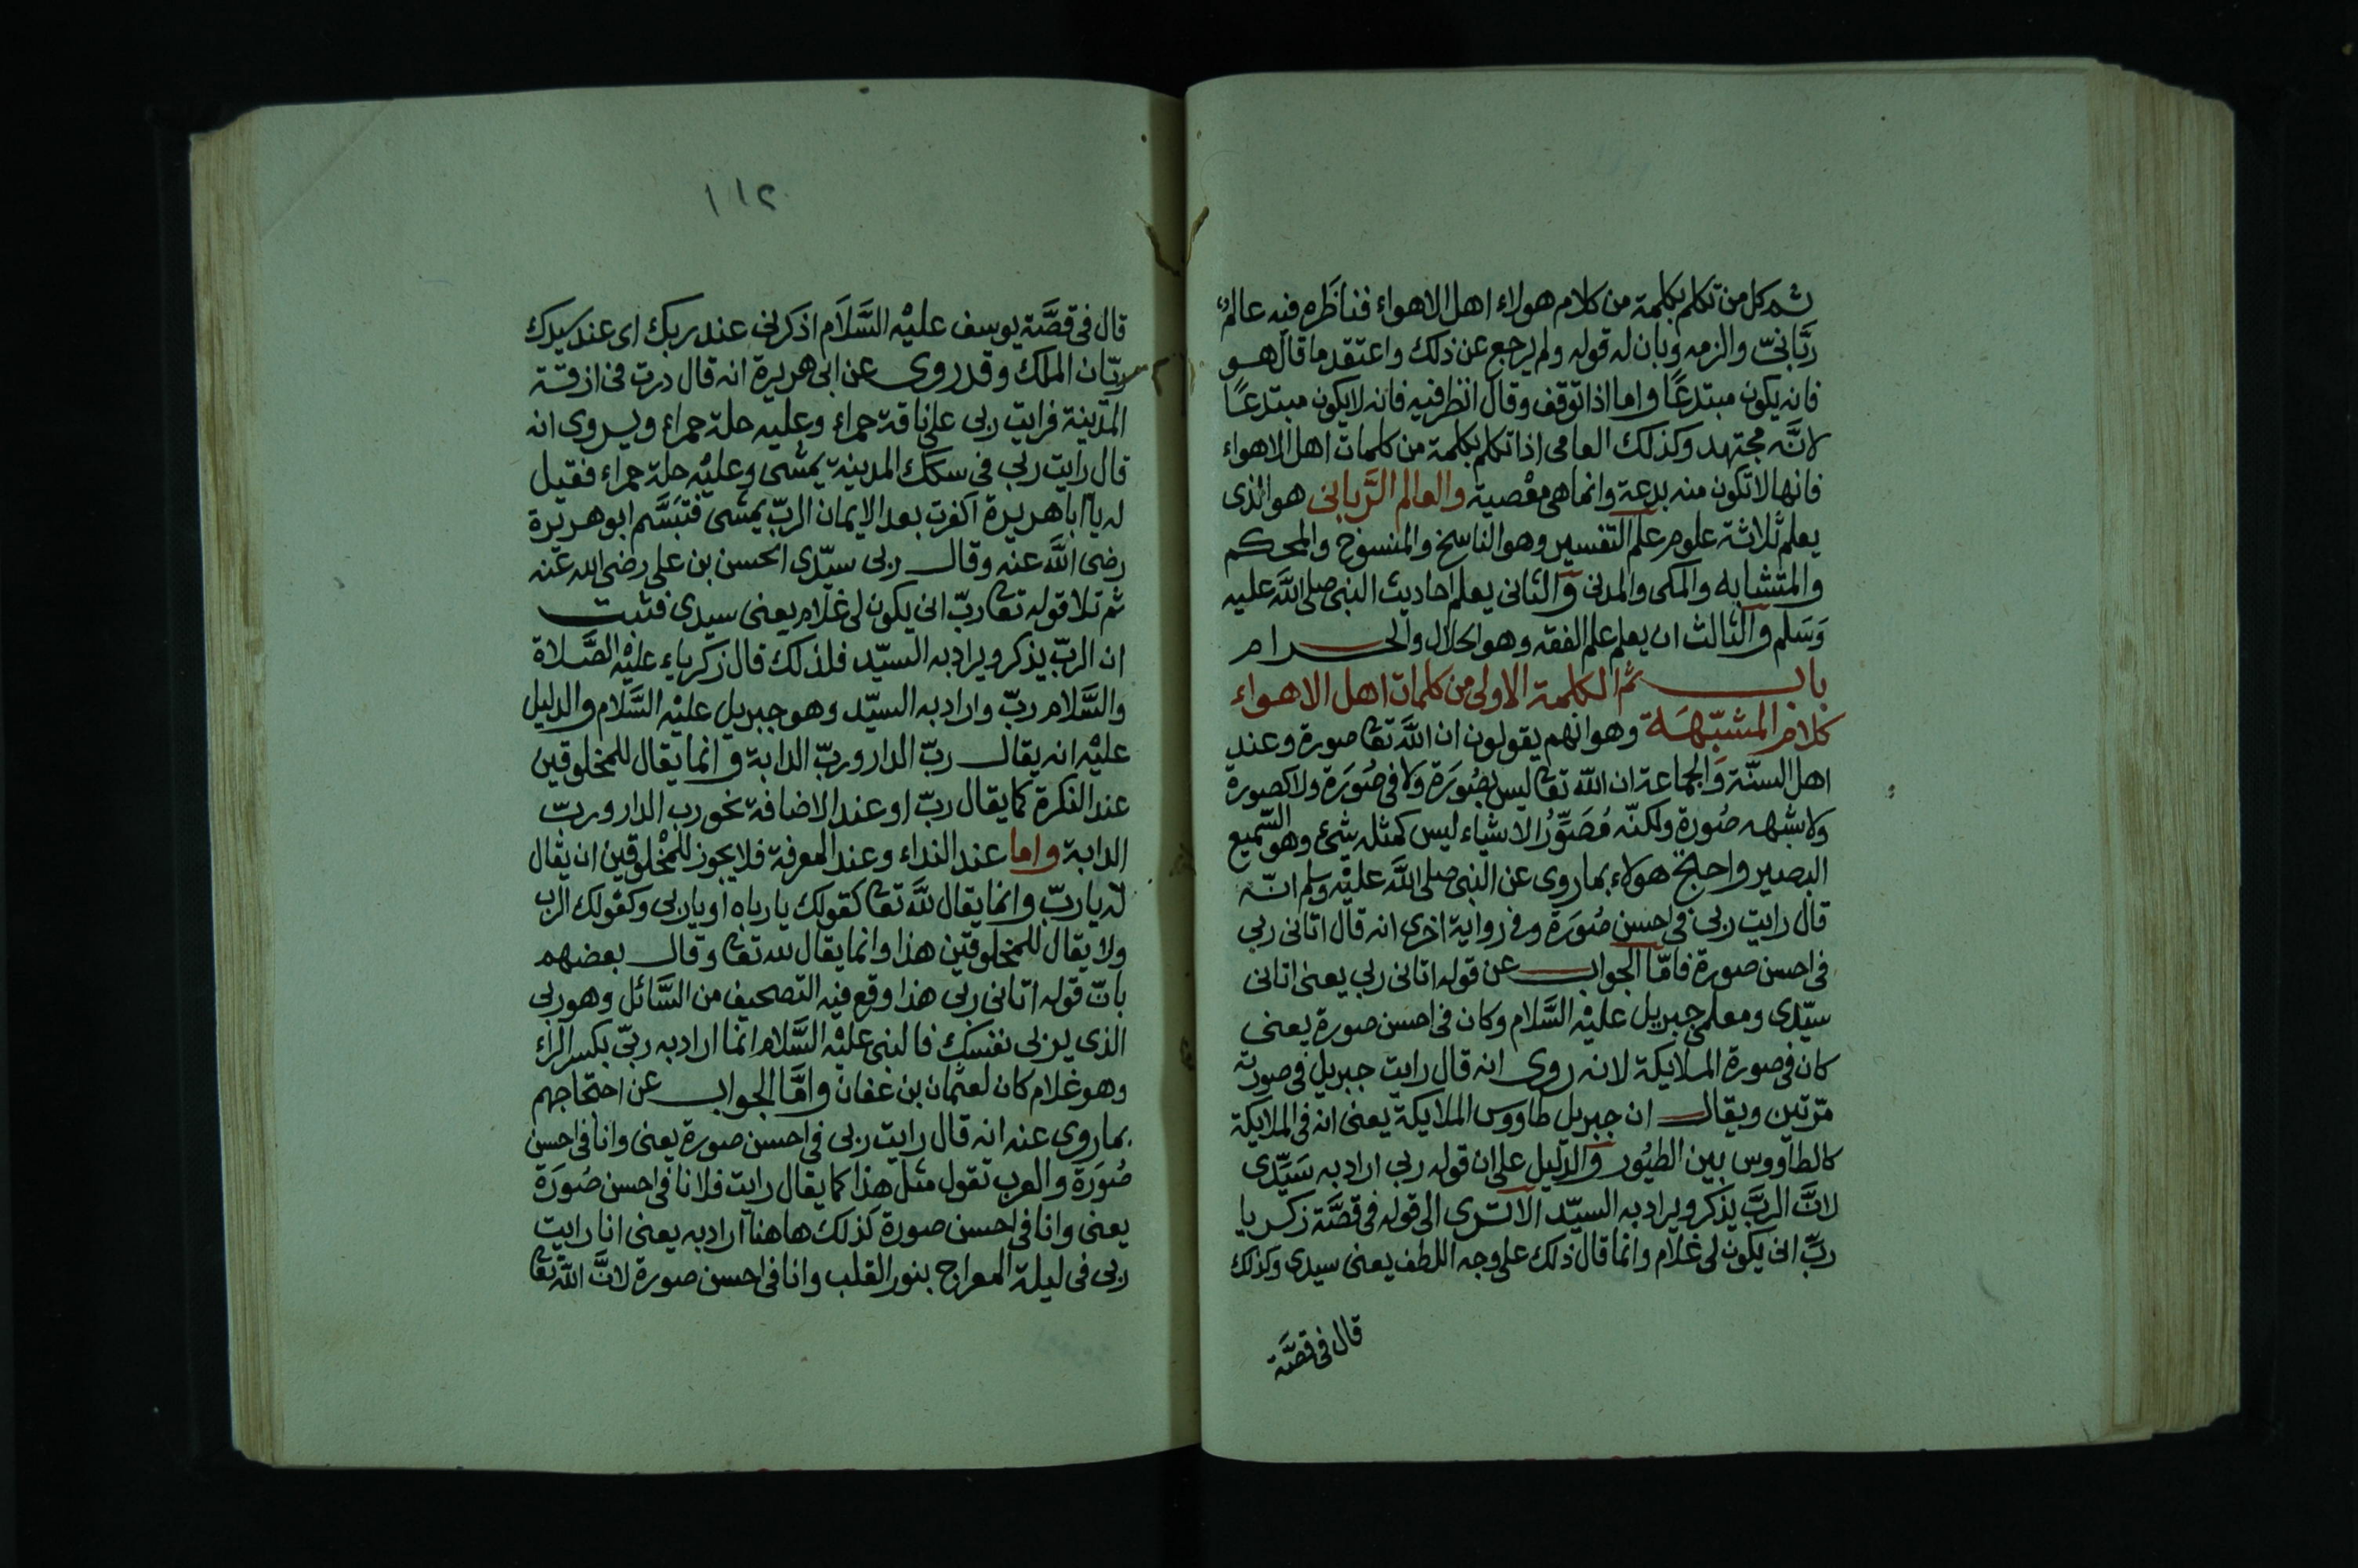 ثم كل من تكلم بكلمة من كلام هولاء اهل الاهواء فناظره فيه عالم
ربّانيّ والزمه وبان له قوله ولم يرجع عن ذلك واعتقد ما قال هو
فانه يكون مبتدعًا واما اذا توقف وقال انظر فيه فانه لا يكون مبتدعًا
لانّه مجتهد وكذلك العامى اذا تكلم بكلمة من كلمات اهل الاهواء
فانها لا تكون منه بدعة وانما هى معْصية والعالم الرَّبانى هو الذى
يعلم ثلاثة علوم علم التفسير وهو الناسخ والمنسوخ والمحكم
والمتشابه والمكى والمدنى والثانى يعلم احاديث النبى صلى اللَّه عليه
وَسَلم والثالث ان يعلم علم الفقه وهو الحلال والحرام
باب ثم الكلمة الاولى من كلمات اهل الاهواء
كلام المشبّهَة وهو انهم يقولون ان اللَّه تعا صورة وعند
اهل السنّة وَالجماعة ان اللّه تعا ليس بصُورَة ولا فى صُورَة ولا كصورة
ولا شبهه صُورة ولكنّه مُصَوِّرُ الاشياء ليس كمثله شئ وهو السّميع
البصير واحتج هولاء بما روى عن النبى صلى اللَّه عليْه وسلم انّه
قال رايت ربى فى احسن صُورَة وفى رواية اخرى انه قال اتانى ربى
فى احسن صورة فامّا الجواب عن قوله اتانى ربى يعنى اتانى
سيّدى ومعلمى جبريل عليْه السَّلام وكان فى احسن صورة يعنى
كان فى صورة الملايكة لانه روى انه قال رايت جبريل فى صورته
مرّتين ويقال ان جبريل طاووس الملايكة يعنى انه فى الملايكة
كالطاووس بين الطيُور والدّليل على ان قوله ربى اراد به سَيِّدى
لانَّ الربَّ يذكر ويراد به السيّد الا ترى الى قوله فى قصَّة زكريا
ربِّ انى يكون لى غلام وانما قال ذلك على وجه اللطف يعنى سيدى وكذلك
قال فى قصَّة
١١٢
قال فى قصَّة يوسف عليْه السَّلَام اذكرنى عند ربك اى عند سيدك
ريّان الملك وقد روى عن ابى هريرة انه قال درت فى ازقّة
المدينة فرايت ربى على ناقة حمراء وعليه حلة حمراء ويروى انه
قال رايت ربى فى سكك المدينة يمشى وعليْه حلة حمراء فقيل
له يا ابا هريرة اكفرت بعد الايمان الربّ يمشى فتبَسَّم ابو هريرة
رضى اللَّه عنه وقال ربى سيّدى الحسن بن على رضى الله عنه
ثم تلا قوله تعا ربّ انى يكون لى غلام يعنى سيدى فثبت
ان الربّ يذكر ويراد به السيّد فلذلك قال زكرياء عليْه الصَّلاة
والسَّلام ربّ واراد به السيّد وهو جبريل عليْه السَّلام والدليل
عليْه انه يقال ربّ الدار وربّ الدابة وانما يقال للمخلوقين
عند النكرة كما يقال ربّ او عند الاضافة نحو رب الدار وربّ
الدابة واما عند النداء وعند المعرفة فلا يجوز للمخْلوقين ان يقال
له يا ربّ وانما يقال للَّه تعا كقولك يا رباه او يا ربى وكقولك الرب
ولا يقال للمخلوقين هذا وانما يقال لله تعا وقال بعضهم
بانّ قوله اتانى ربى هذا وقع فيْه التصحيف من السَّائل وهو ربى
الذى يربى نفسك فالنبى عليْه السَّلام انما اراد به ربّى بكسر الراء
وهو غلام كان لعثمان بن عفان وامَّا الجواب عن احتجاجهم
بما روى عنه انه قال رايت ربى فى احسن صورة يعنى وانا فى احسن
صُورَة والعرب تقول مثل هذا كما يقال رايت فلانا فى احسن صُورَة
يعنى وانا فى احسن صورة كذلك هاهنا اراد به يعنى انا رايت
ربى فى ليلة المعراج بنور القلب وانا فى احسن صورة لانَّ اللّه تعا